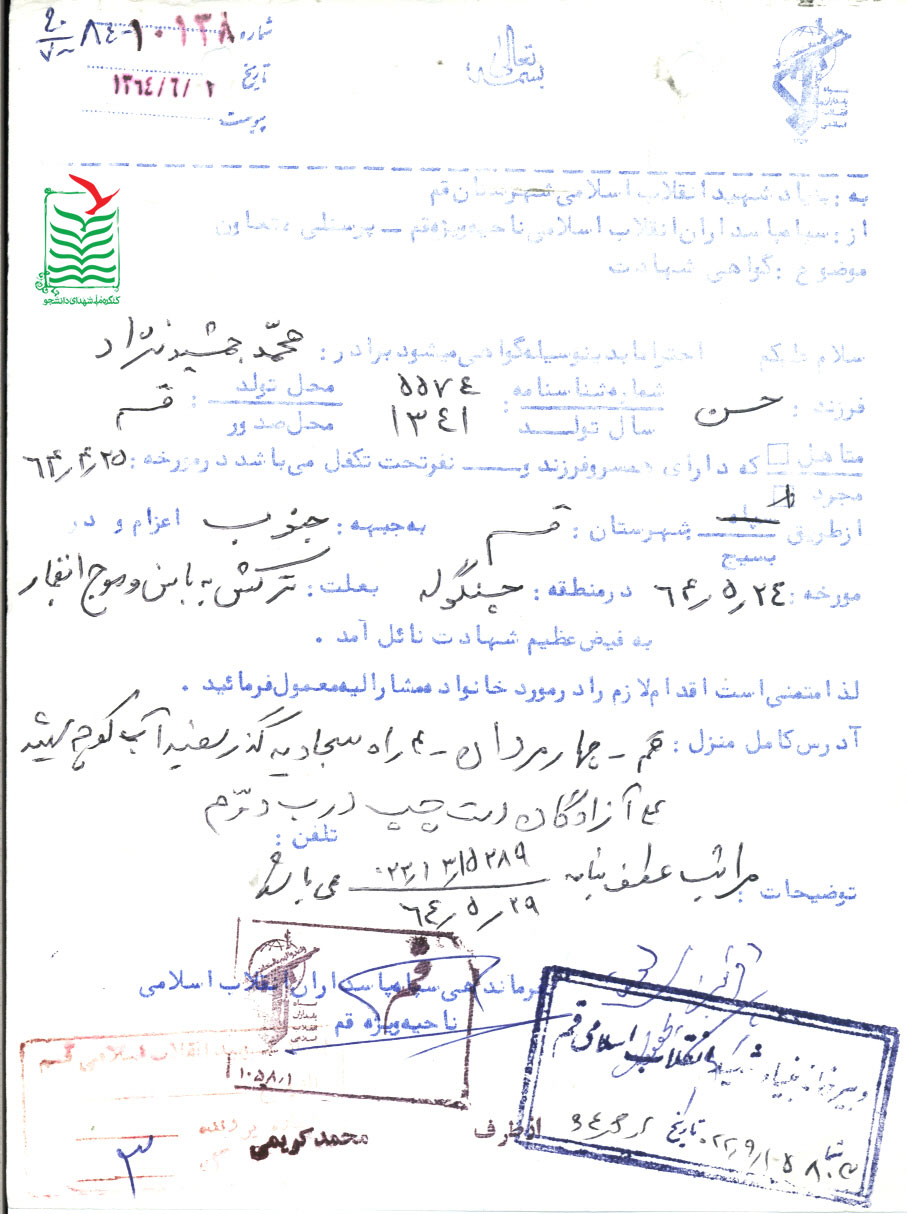 بسمه تعالی
شماره ۱۰۱۳۸-۸٤
تاریخ ۱۳٦٤/٦/۲
پیوست
سپاه پاسداران انقلاب اسلامی
به : بنیاد شهید انقلاب اسلامی شهرستان قم
از : سپاه پاسداران انقلاب اسلامی ناحیه ویژه قم ــ پرسنلی ، تعاون
موضوع : گواهی شهادت
کنگره ملی شهدای دانشجو
سلام علیکم احتراما بدینوسیله گواهی میشود برادر : محمّد جمشیدنژاد
فرزند : حسن شماره شناسنامه : ۵۵۷٤ محل تولد : قم
سال تولد ۱۳٤۱ محل صدور
متاهل که دارای همسر و فرزند و ــ نفر تحت تکفل می باشد در مورخه : ۶۴٫۴٫۲۵
مجرد
از طریق سپاه شهرستان : قم به جبهه : جنوب اعزام و در
بسیج
مورخه : ۶۴٫۵٫۲٤ در منطقه : چنگوله بعلت : ترکش به باسن و موج انفجار
به فیض عظیم شهادت نائل آمد .
لذا متمنی است اقدام لازم را در مورد خانواده مشارالیه معمول فرمائید .
آدرس کامل منزل : قم ـ چهارمردان ـ ۴ راه سجادیه گذر سفیدآب کوچه شهید
آزادگان دست چپ درب دوّم
تلفن :
توضیحات : مراتب عطف بنامه ۰۲۲٫۱۳٫۱۵۲۸۹ می باشد
۶٤٫۵٫۲۹
فرماندهی سپاه پاسداران انقلاب اسلامی
ناحیه ویژه قم
قم
سپاه پاسداران انقلاب اسلامی
۱۰۵۸٫۱
دبیرخانه بنیاد شهید انقلاب اسلامی قم
شماره
تاریخ
انقلاب اسلامی قم
از طرف محمد کریمی
۳